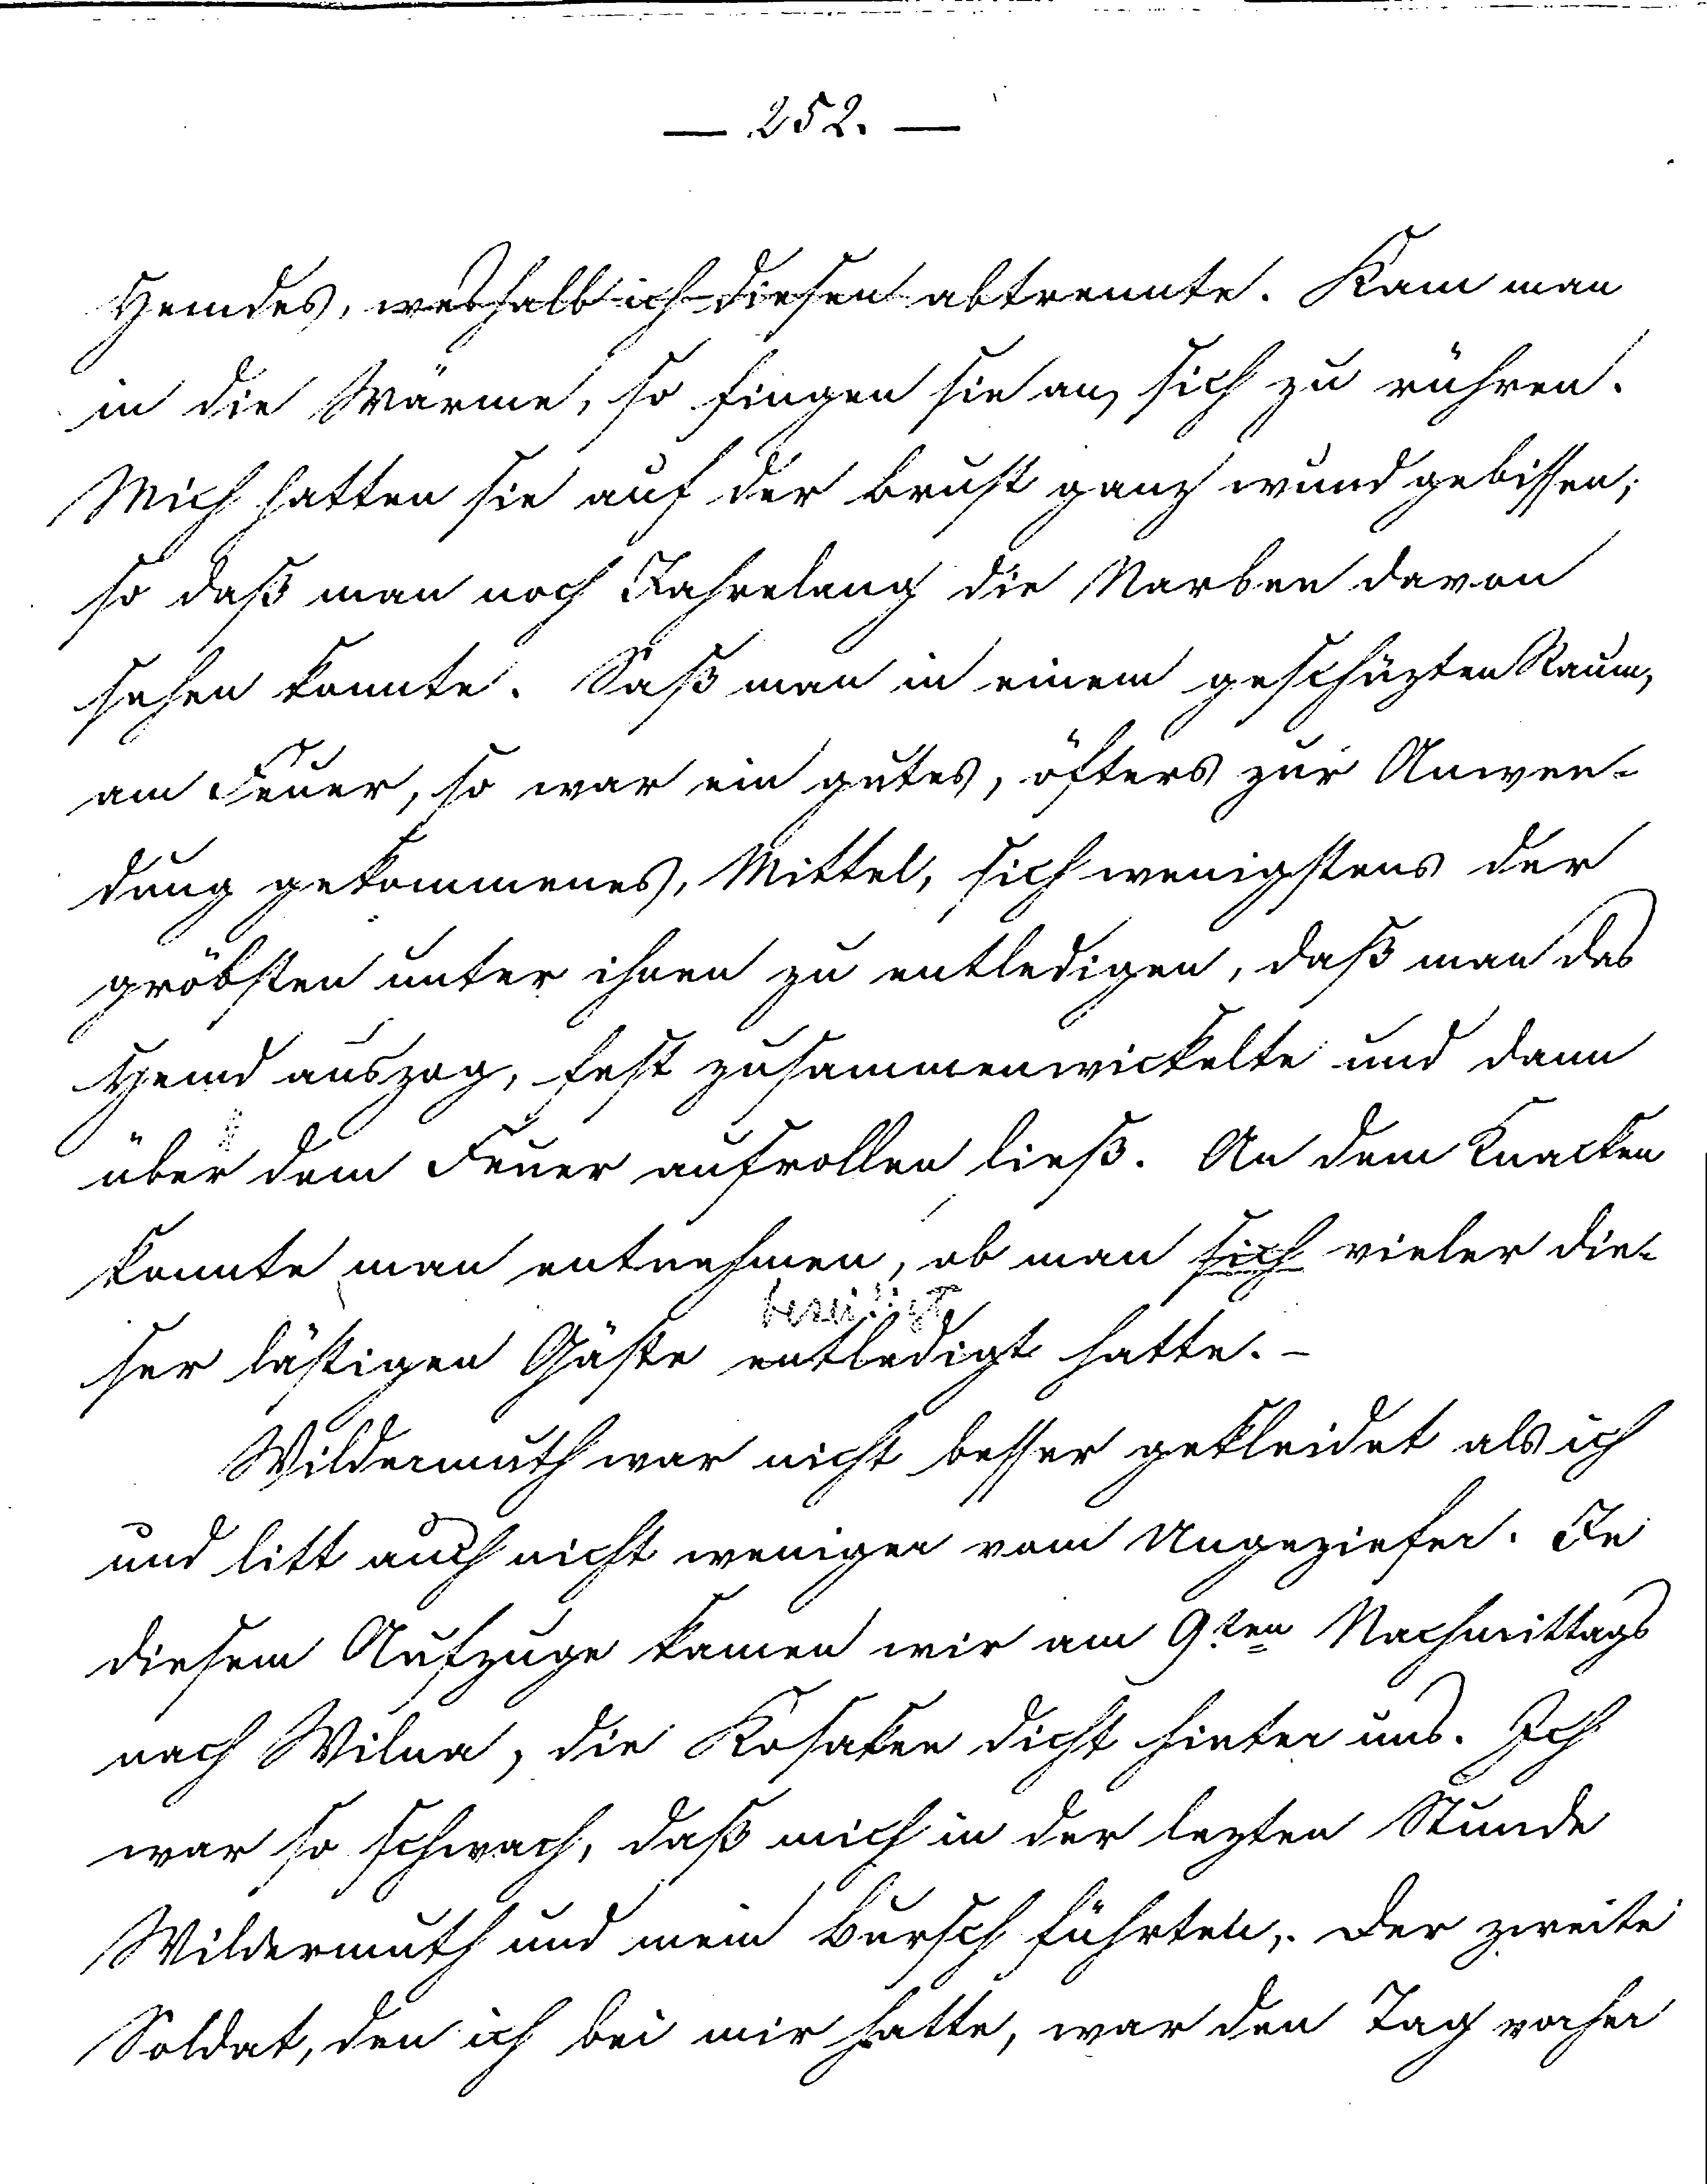 — 252. —
Hemdes, weshalb ich diesen abtrennte. Kam man
in die Wärme, so fingen sie an, sich zu rühren.
Mich hatten sie auf der Brust ganz wund gebissen,
so daß man noch Jahrelang die Narben davon
sehen konnte. Saß man in einem geschüzten Raum,
am Feuer, so war ein gutes, öfters zur Anwen-
dung gekommenes, Mittel, sich wenigstens der
gröbsten unter ihnen zu entledigen, daß man das
Hemd auszog, fest zusammenwickelte und dann
über dem Feuer aufrollen ließ. An dem Knacken
konnte man entnehmen, ob man sich vieler die-
ser lästigen Gäste entledigt hatte. –
Wildermuth war nicht besser gekleidet als ich
und litt auch nicht weniger vom Ungeziefer. In
diesem Aufzuge kamen wir am 9ten Nachmittags
nach Wilna, die Kosaken dicht hinter uns. Ich
war so schwach, daß mich in der lezten Stunde
Wildermuth und mein Bursch führten,. Der zweite
Soldat, den ich bei mir hatte, war den Tag vorher